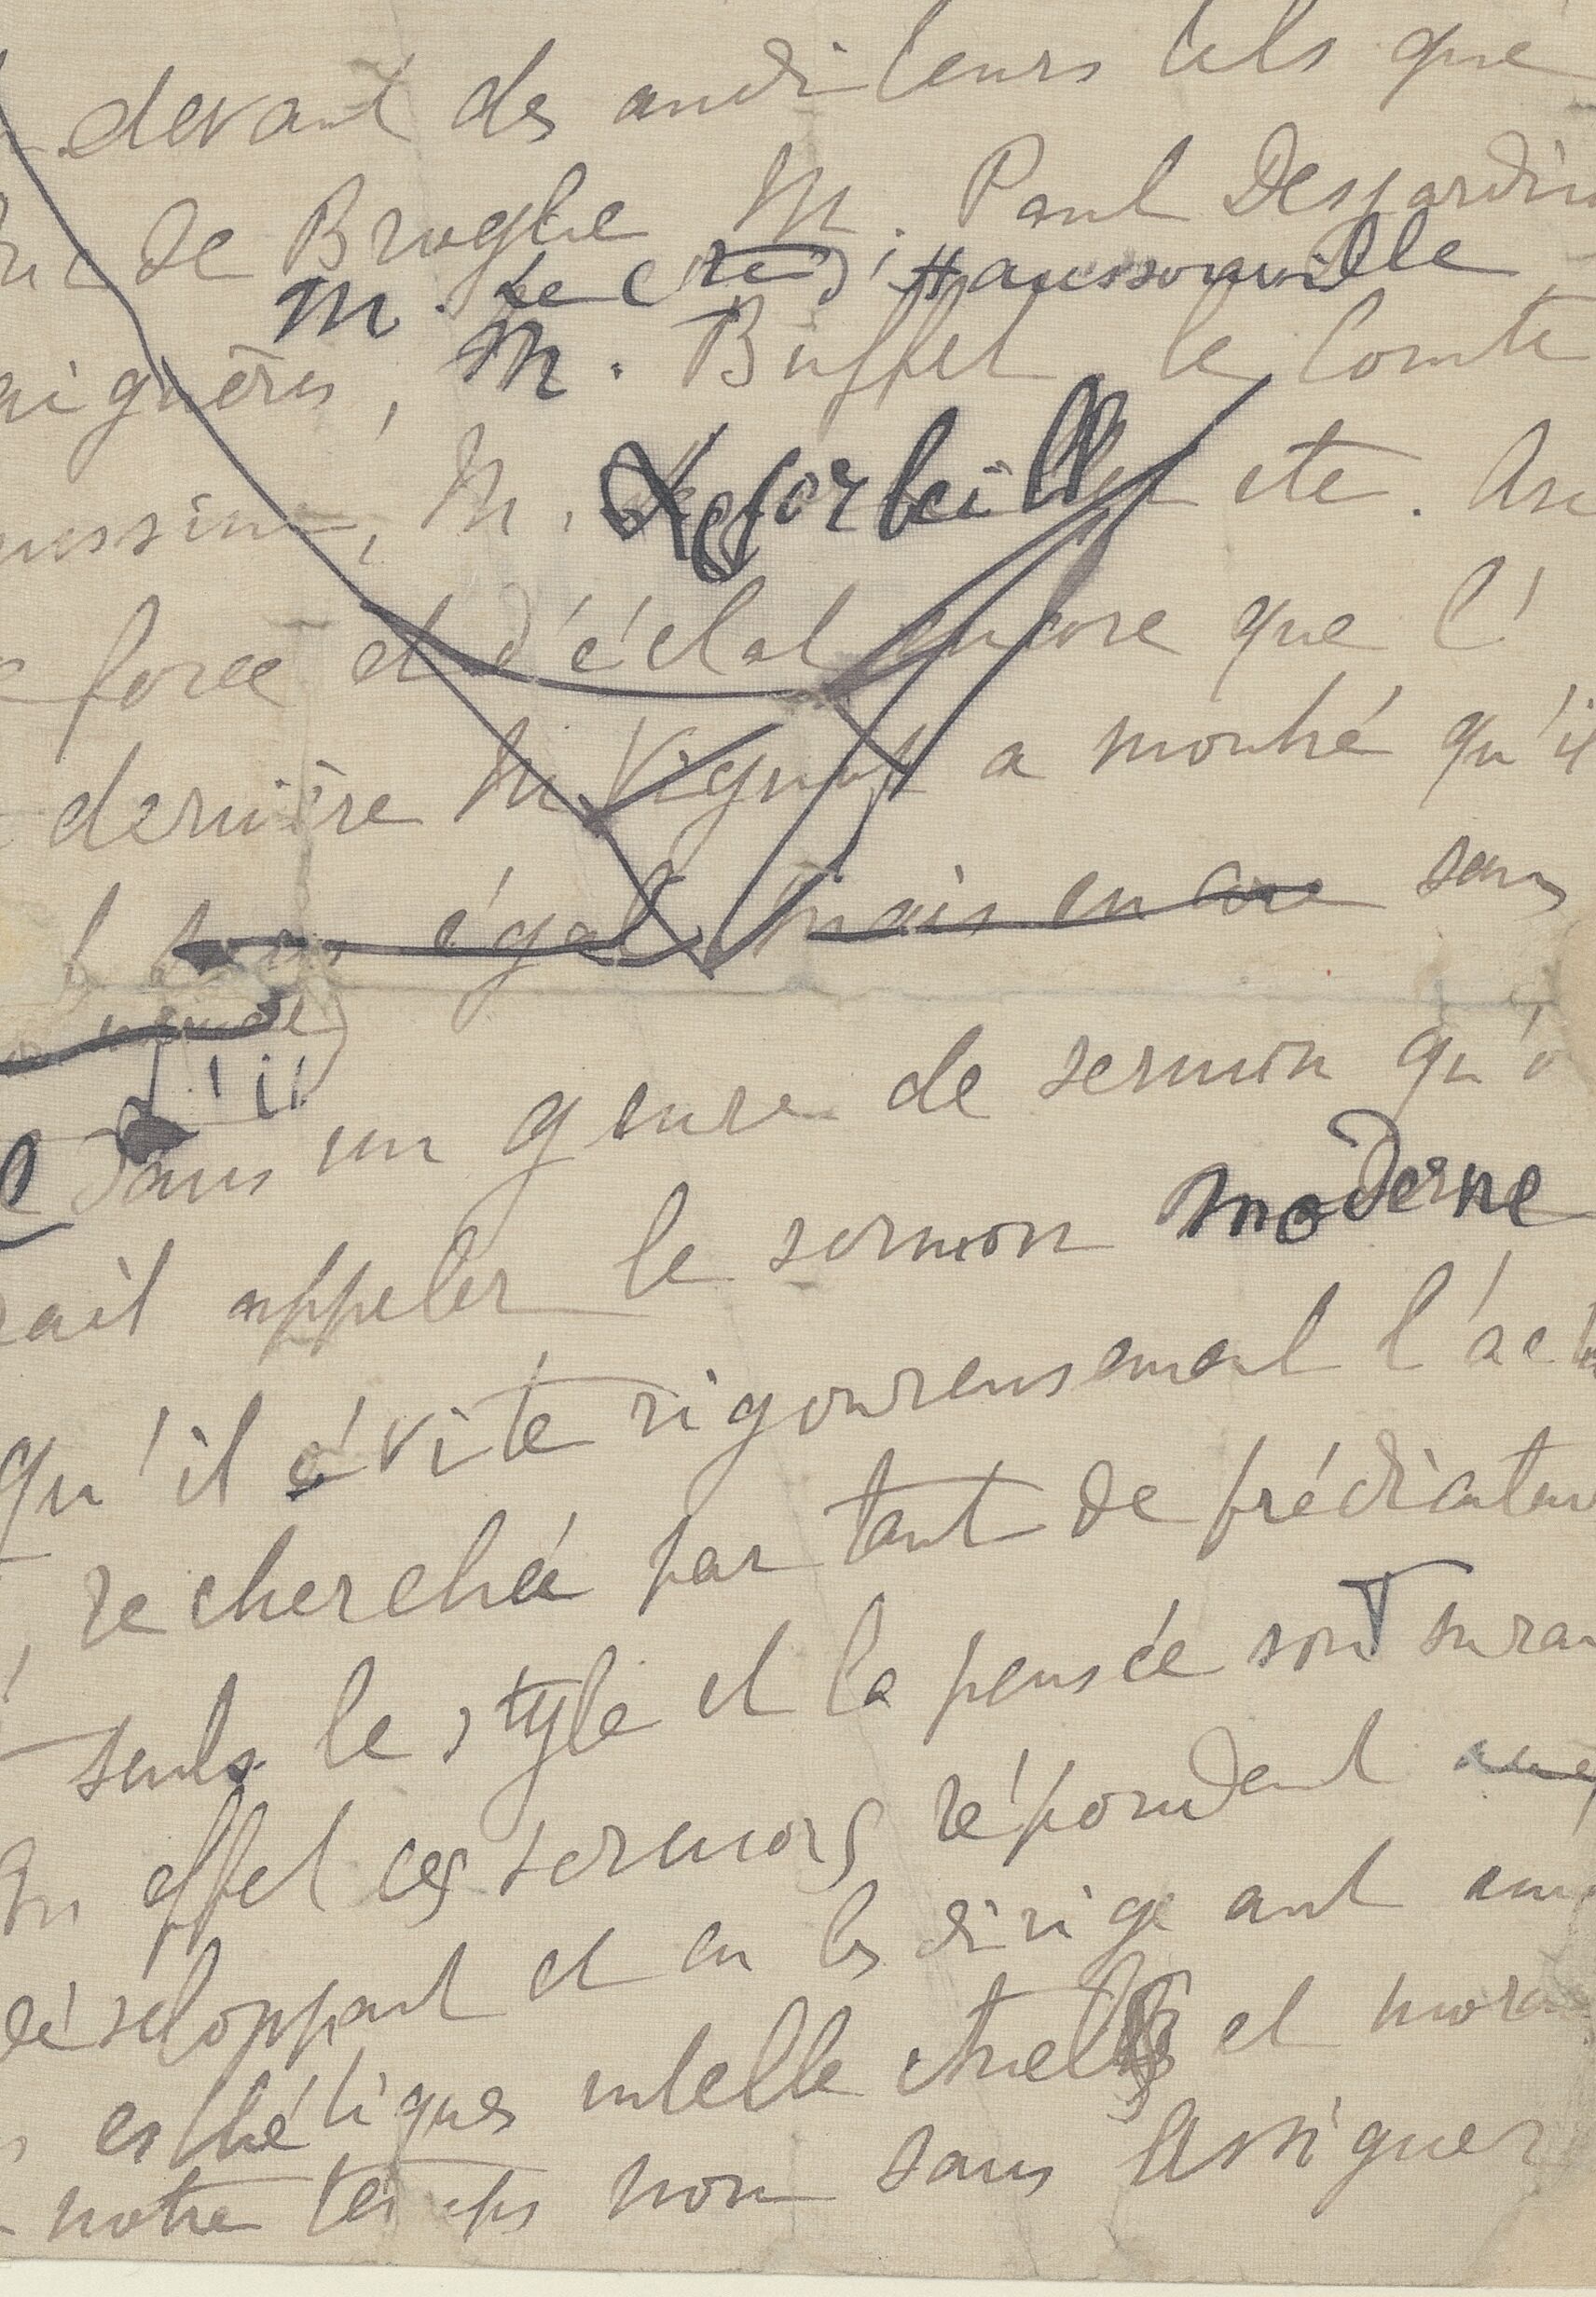 devant des auditeurs tels que
de Broglie M. Paul Desjardin
M. Le Cte d'Haussonville
aignères, M. Buffet le Comte
M. Deforbeille etc.
force et d'éclat encore que l'
dernière M. Vignot a montré qu'il
égal mais encore sans
qu'il
dans un genre de sermon qu'o
rait appeler le sermon moderne
qu'il évite rigoureusement l'act
recherchée par tant de prédicateu
seuls le style et la pensée sont
En effet ces sermons répondent
développant et en les dirigeant aux
esthétiques intellectuelles et mora
notre temps non sans assigner